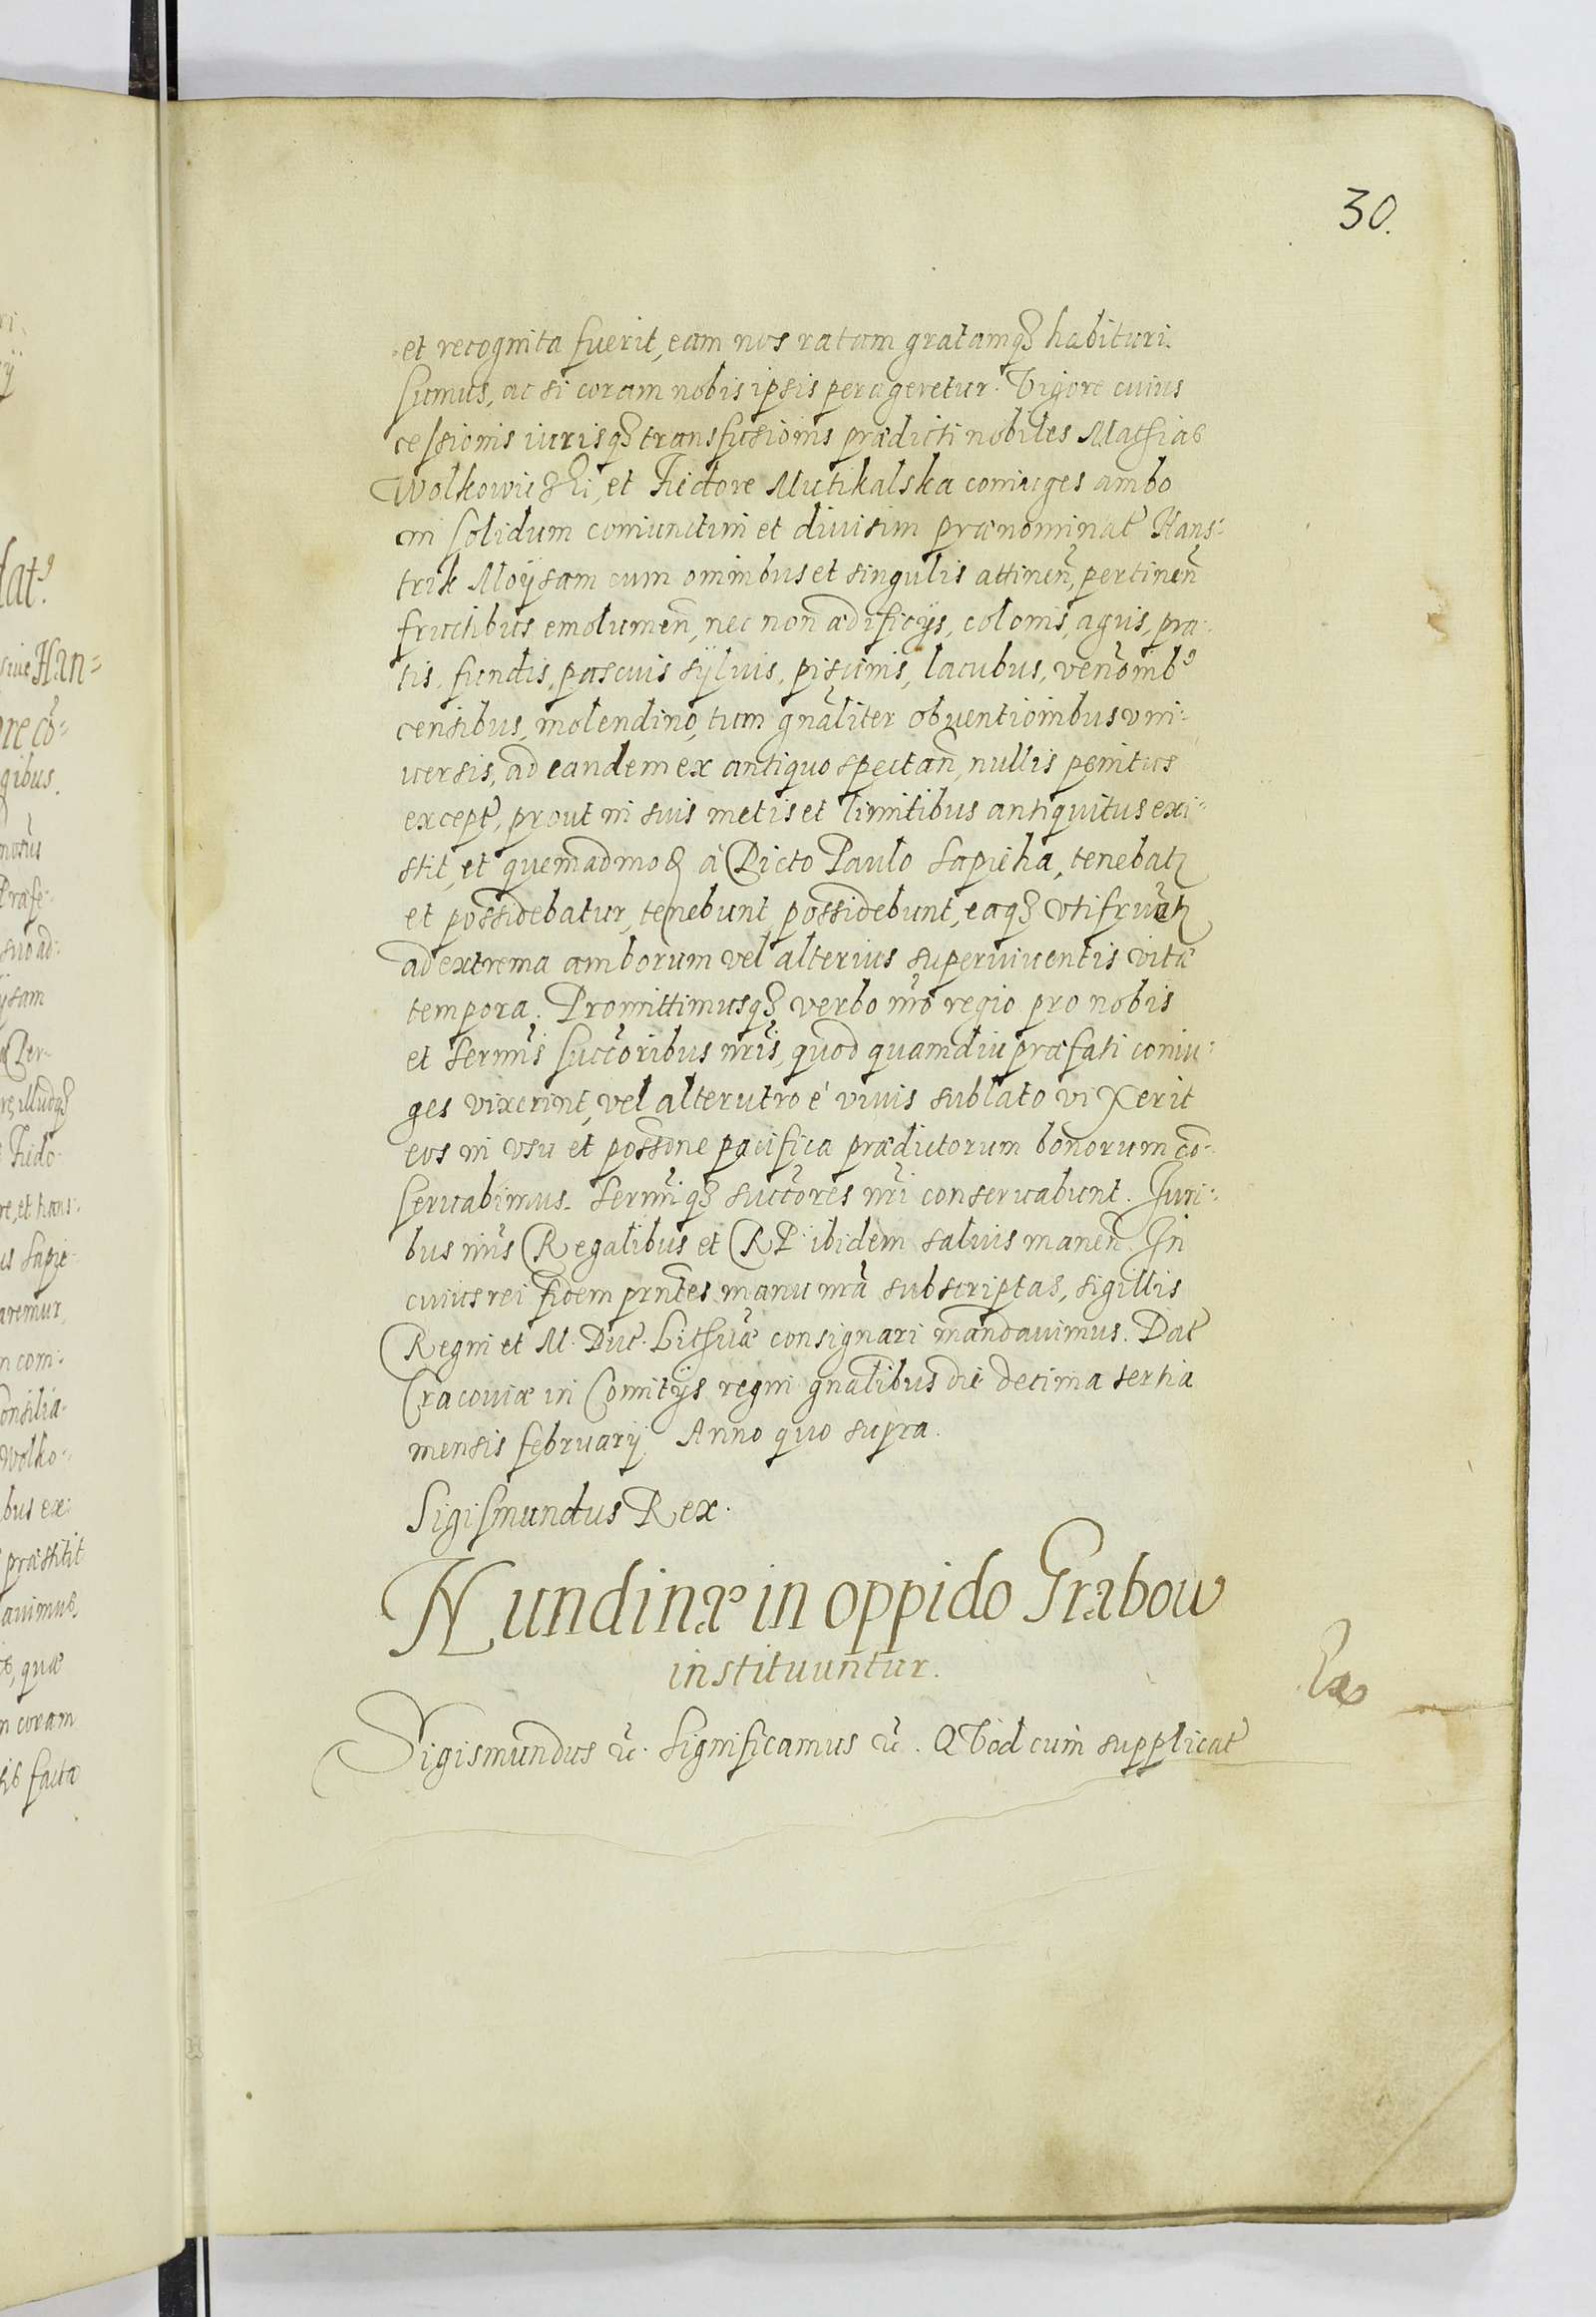 30.
et recognita fuerit, eam nos ratam gratamq₃ habituri
sumus, ac si coram nobis ipsis perageretur. Vigore cuius
cessionis iurisq₃ transfusionis prædicti nobiles Mathias
Wolkowicz et Mutikalska coniuges ambo
in solidum coniunctim et diuisim prænominat̃ Hans-
trik Moÿsam cum omnibus et singulis attineñ, pertineñ
fructibus emolumeñ, nec non ædificijs, colonis, aguis, pra-
tis, fundis, pascuis sÿluis, piscinis, lacubus, venõnib⁹
censibus, molendino, tum gñaliter obuentionibus vni-
uersis, ad eandem ex antiquo spectañ, nullis penitus
except̃, prout in suis metis et limitibus antiquitus exi-
stit, et quemadmod̃ à Dicto Paulo Sapieha, tenebat̃
et possidebatur, tenebunt, possidebunt, eaq₃ vtifruãt̃
ad extrema amborum vel alterius superuiuentis vitæ
tempora. Promittimusq₃ verbo ñro regio pro nobis
et Serm̃is succõribus ñris, quod quamdiu præfati coniu-
ges vixerint, vel alterutro è viuis sublato vixerit
eos in vsu et possõne pacifica prædictorum bonorum cõ-
seruabimus. Serm̃iq₃ succõres ñri conseruabunt. Juri-
bus ñris Regalibus et R P. ibidem saluis maneñ. In
cuius rei fidem pr̃ntes manu ñrã subscriptas, sigillis
Regni et M. Duc̃. Lithuæ consignari mandauimus. Dat̃
Cracouiæ in Comitijs regni gñalibus die decima tertia
mensis februarij Anno quo supra.
Sigismundus Rex.
Nundinæ in oppido Grabow
instituuntur.
Sigismundus &c̃. Significamus &c̃. QVod cum supplicat̃